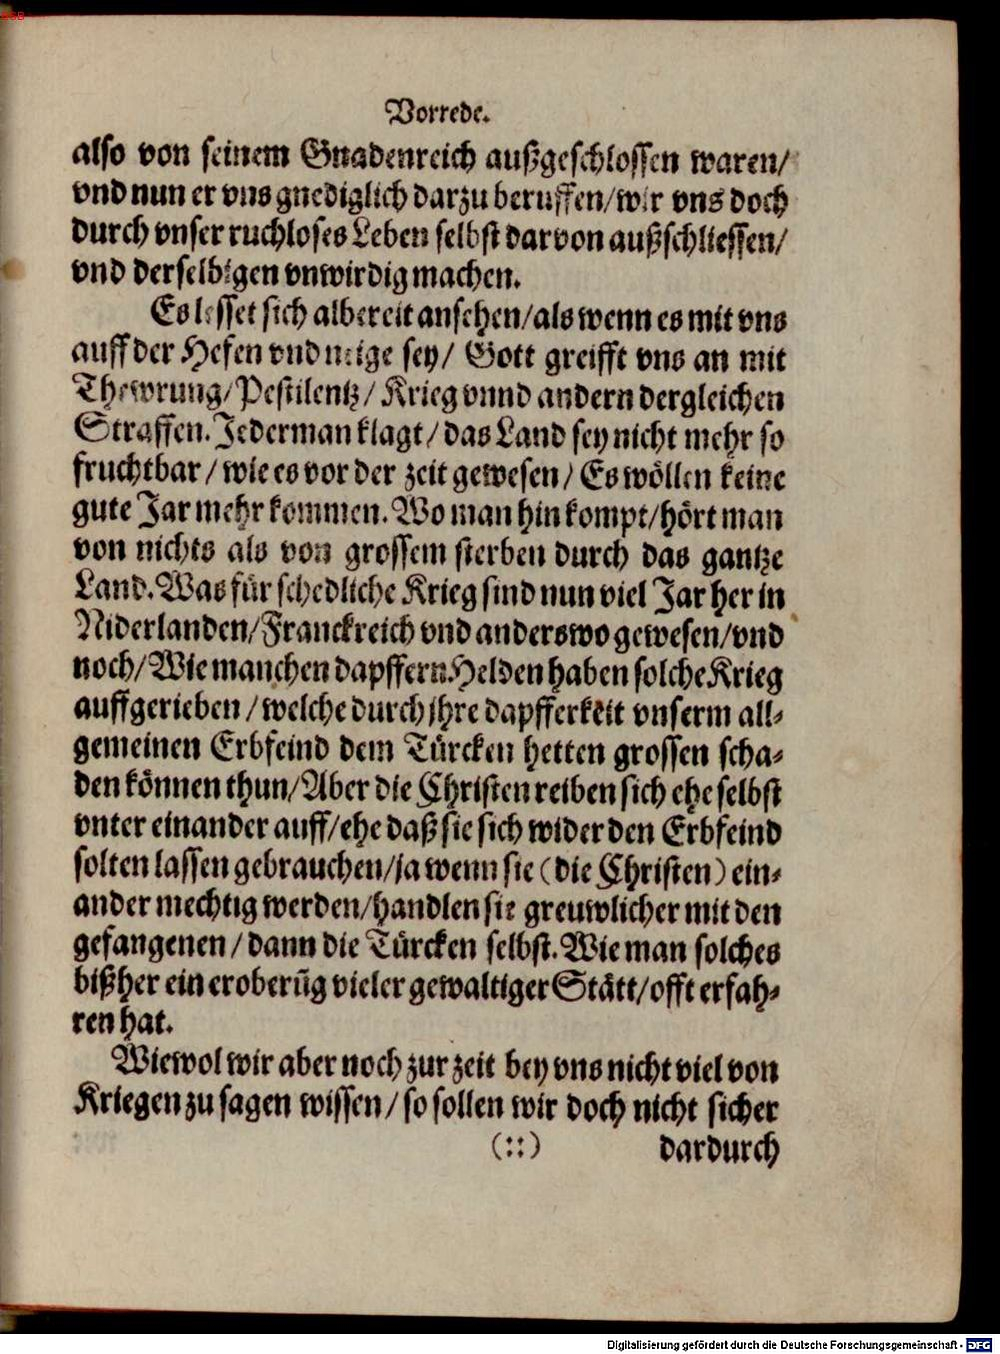 Vorrede.
also von seinem Gnadenreich außgeschlossen waren/
vnd nun er vns gnediglich darzu beruffen/wir vns doch
durch vnser ruchloses Leben selbst darvon außschliessen/
vnd derselbigen vnwirdig machen.
Es lesset sich albereit ansehen/als wenn es mit vns
auff der Hefen vnd neige sey/ Gott greifft vns an mit
Thewrung/Pestilentz/ Krieg vnnd andern dergleichen
Straffen. Jederman klagt/das Land sey nicht mehr so
fruchtbar/wie es vor der zeit gewesen/ Es wöllen keine
gute Jar mehr kommen. Wo man hin kompt/hört man
von nichts als von grossem sterben durch das gantze
Land. Was für schedliche Krieg sind nun viel Jar her in
Niderlanden/Franckreich vnd anderswo gewesen/vnd
noch/Wie manchen dapffern Helden haben solche Krieg
auffgerieben/welche durch jhre dapfferkeit vnserm all-
gemeinen Erbfeind dem Türcken hetten grossen scha-
den können thun/Aber die Christen reiben sich ehe selbst
vnter einander auff/ehe daß sie sich wider den Erbfeind
solten lassen gebrauchen/ja wenn sie (die Christen) ein-
ander mechtig werden/handlen sie greuwlicher mit den
gefangenen/dann die Türcken selbst. Wie man solches
bißher ein eroberũg vieler gewaltiger Stätt/offt erfah-
ren hat.
Wiewol wir aber noch zur zeit bey vns nicht viel von
Kriegen zu sagen wissen/so sollen wir doch nicht sicher
(::) dardurch
Digitalisierung gefördert durch die Deutsche Forschungsgemeinschaft - DFG